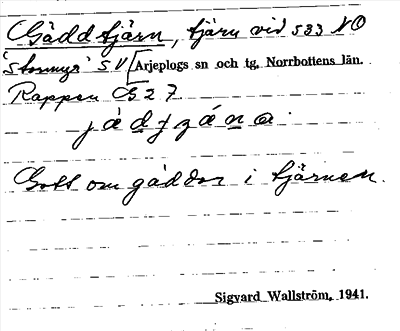 Gäddtjärn, tjärn vid 533 NO
'Stormyr' SV [Arjeplogs sn och tg, Norrbottens län.
Rappen G 2 7
Gott om gäddor i tjärnen.
Sigvard Wallström, 1941.